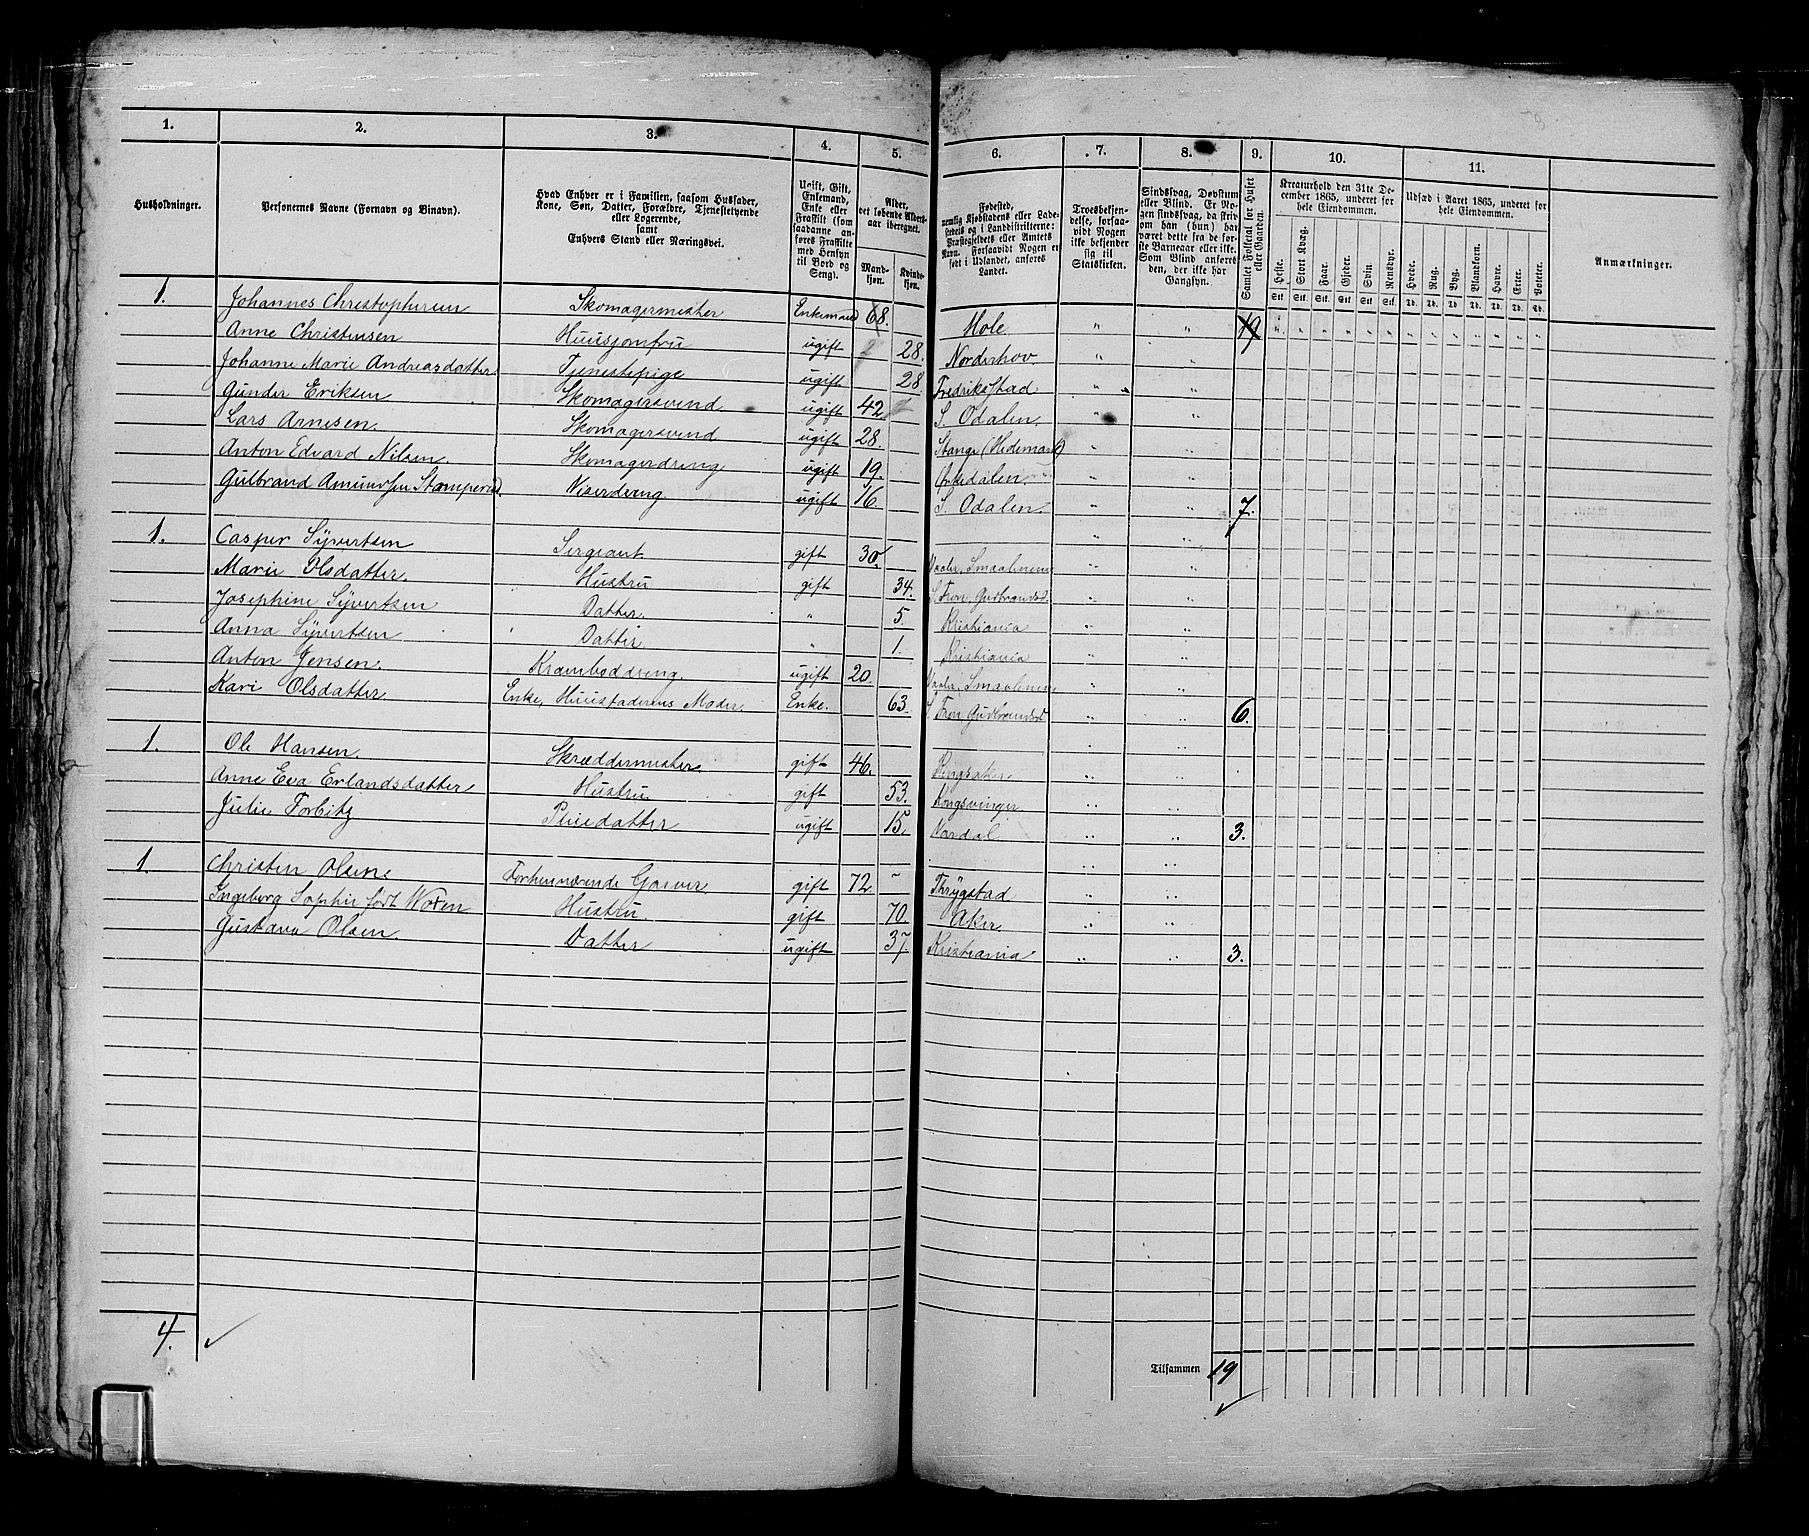 1. 2. 3. 4. 5. 6. 7. 8. 9. 10. 11.
Husholdninger.
Personernes Navne (Fornavn og Binavn).
Hvad Enhver er i Familien, saasom Husfader,
Kone, Søn, Datter, Forældre, Tjenestetyende
eller Logerende,
samt
Enhvers Stand eller Næringsvei.
Ugift, Gift,
Enkemand,
Enke eller
Fraskilt (som
saadanne an-
føres Fraskilte
med Hensyn
til Bord og
Seng).
Alder,
det løbende Alders-
aar iberegnet.
Mand-
kjøn.
Kvinde-
kjøn.
Fødested,
nemlig Kjøbstadens eller Lade-
stedets og i Landdistrikterne:
Præstegjeldets eller Amtets
Navn. Forsaavidt Nogen er
født i Udlandet, anføres
Landet.
Troesbekjen-
delse, forsaa-
vidt Nogen
ikke bekjender
sig til
Statskirken.
Sindssvag, Døvstum
eller Blind. Er No-
gen sindssvag, da skriv
om han (hun) har
været dette fra de før-
ste Barneaar eller ikke.
Som Blind anføres
den, der ikke har
Gangsyn.
Samlet Folketal for Huset
eller Gaarden.
Kreaturhold den 31te De-
cember 1865, underet for
hele Eiendommen.
Heste. Stort Kvæg. Faar. Gjeder. Svin. Rensdyr.
Stk. Stk. Stk. Stk. Stk. Stk.
Udsæd i Aaret 1865, underet for
hele Eiendommen.
Hvede. Rug. Byg. Blandkorn. Havre. Erter. Poteter.
Td. Td. Td. Td. Td. Td. Td.
Anmærkninger.
1. Johannes Christophersen Skomagermester Enkemand 68. Hole " " 19 " " " " " " " " " " " " "
Anne Christensen Huusjomfru ugift 28. Norderhov " "
Johanne Marie Andreasdatter Tjenestepige ugift 28 Fredrikstad " "
Gunder Eriksen Skomagersvend ugift 42 S. Odalen " "
Lars Arnesen Skomagersvend ugift 28. Stange (Hedemark) " "
Anton Edvard Nilsen. Skomagerdreng ugift 19. Ørkedalen " "
Gulbrand Amundsen Viserdreng ugift 16. S. Odalen " " 7.
1. Casper Syvertsen Sergeant gift 30 Vaaler, Smaalenene " "
Marie Olsdatter. Hustru gift 34. S. Fron, Gudbrandsd. " "
Josephine Syvertsen Datter. " 5. Kristiania " "
Anna Syvertsen Datter. " 1. Kristiania " "
Anton Jensen. Kramboddreng. ugift 20. Vaaler, Smaalenene " "
Kari Olsdatter Enke, Huusfaderens Moder. Enke. 63. S. Fron Gudbrandsd. " " 6.
1. Ole Hansen. Skræddermester gift 46. Ringsaker " "
Anne Eva Erlandsdatter Hustru gift 53. Kongsvinger " "
Julie Forbitz Pleiedatter ugift 15. Vardal " " 3.
1. Christen Olsen. Forhenværende Garver gift 72. - Thrygstad " "
Ingeborg Sophie født Hustru. gift 70. Aker " "
Gustava Olsen. Datter ugift 37. Kristiania " " 3.
4.
Tilsammen 19